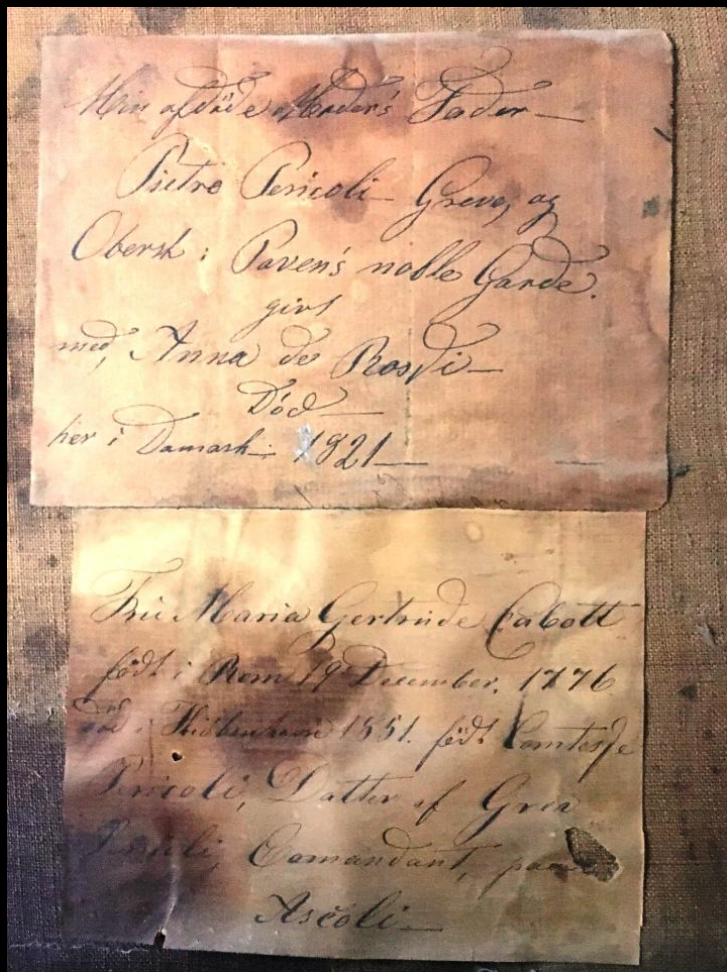 Min afdöde Moder's Fader—
Pietro Pericoli— Greve, og
Oberst i Paven's noble Garde.
givt
med, Anna de Rossi—
Död—
her i Danmark— 1821—
Frü Maria Gertrude Cabott
født i Rom 19 December, 1776
död i Kiöbenhavn 1851. født Comtesse
Pericoli, Datter af Grev
Pericoli, Comandant, paa
Ascoli—